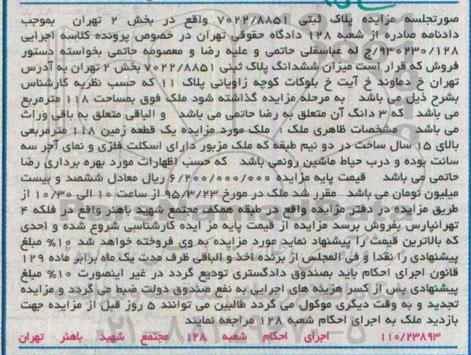 صورتجلسه مزایده پلاک ثبتی ۷۰۲۲/۸۸۵۱ واقع در بخش ۲ تهران بموجب
دادنامه صادره از شعبه ۱۲۸ دادگاه حقوقی تهران در خصوص پرونده کلاسه اجرایی
۹۳۰۲۳۰/۱۲۸/ج له عباسقلی حاتمی و علیه رضا و معصومه حاتمی بخواسته دستور
فروش که قرار است میزان ششدانگ پلاک ثبتی ۷۰۲۲/۸۸۵۱ بخش ۲ تهران به آدرس
تهران خ دماوند خ آیت خ بلوکات کوچه زاویانی پلاک ۱۱ که حسب نظریه کارشناس
بشرح ذیل می باشد به مرحله مزایده گذاشته شود ملک فوق بمساحت ۱۱۸ مترمربع
می باشد که ۳ دانگ آن متعلق به رضا حاتمی می باشد و الباقی متعلق به باقی وراث
می باشد مشخصات ظاهری ملک : ملک مورد مزایده یک قطعه زمین ۱۱۸ مترمربعی
بالای ۱۵ سال ساخت در دو نیم طبقه که ملک مزبور دارای اسکلت فلزی و نمای آجر سه
سانت بوده و درب حیاط ماشین رونمی باشد که حسب اظهارات مورد بهره برداری رضا
حاتمی می باشد قیمت پایه مزایده ۶/۲۰۰/۰۰۰/۰۰۰ ریال معادل ششصد و بیست
میلیون تومان می باشد مقرر شد ملک در مورخ ۹۵/۳/۲۳ از ساعت ۱۰ الی ۱۰/۳۰ از
طریق مزایده در دفتر مزایده واقع در طبقه همکف مجتمع شهید باهنر واقع در فلکه ۴
تهرانپارس بفروش برسد مزایده از قیمت پایه م ز ایده کارشناسی شروع شده و احدی
که بالاترین قیمت را پیشنهاد نماید مورد مزایده به وی فروخته خواهد شد ۱۰% مبلغ
پیشنهادی را نقدا و فی المجلس از برنده اخذ و الباقی ظرف مدت یک ماه برابر ماده ۱۲۹
قانون اجرای احکام باید بصندوق دادگستری تودیع گردد در غیر اینصورت ۱۰% مبلغ
پیشنهادی پس از کسر هزینه های اجرایی به نفع صندوق دولت ضبط می گردد و مزایده
تجدید و به وقت دیگری موکول می گردد طالبین می توانند ۵ روز قبل از مزایده جهت
بازدید ملک به اجرای احکام شعبه ۱۲۸ مراجعه نمایند
۱۱۰/۲۳۸۹۳ اجرای احکام شعبه ۱۲۸ مجتمع شهید باهنر تهران